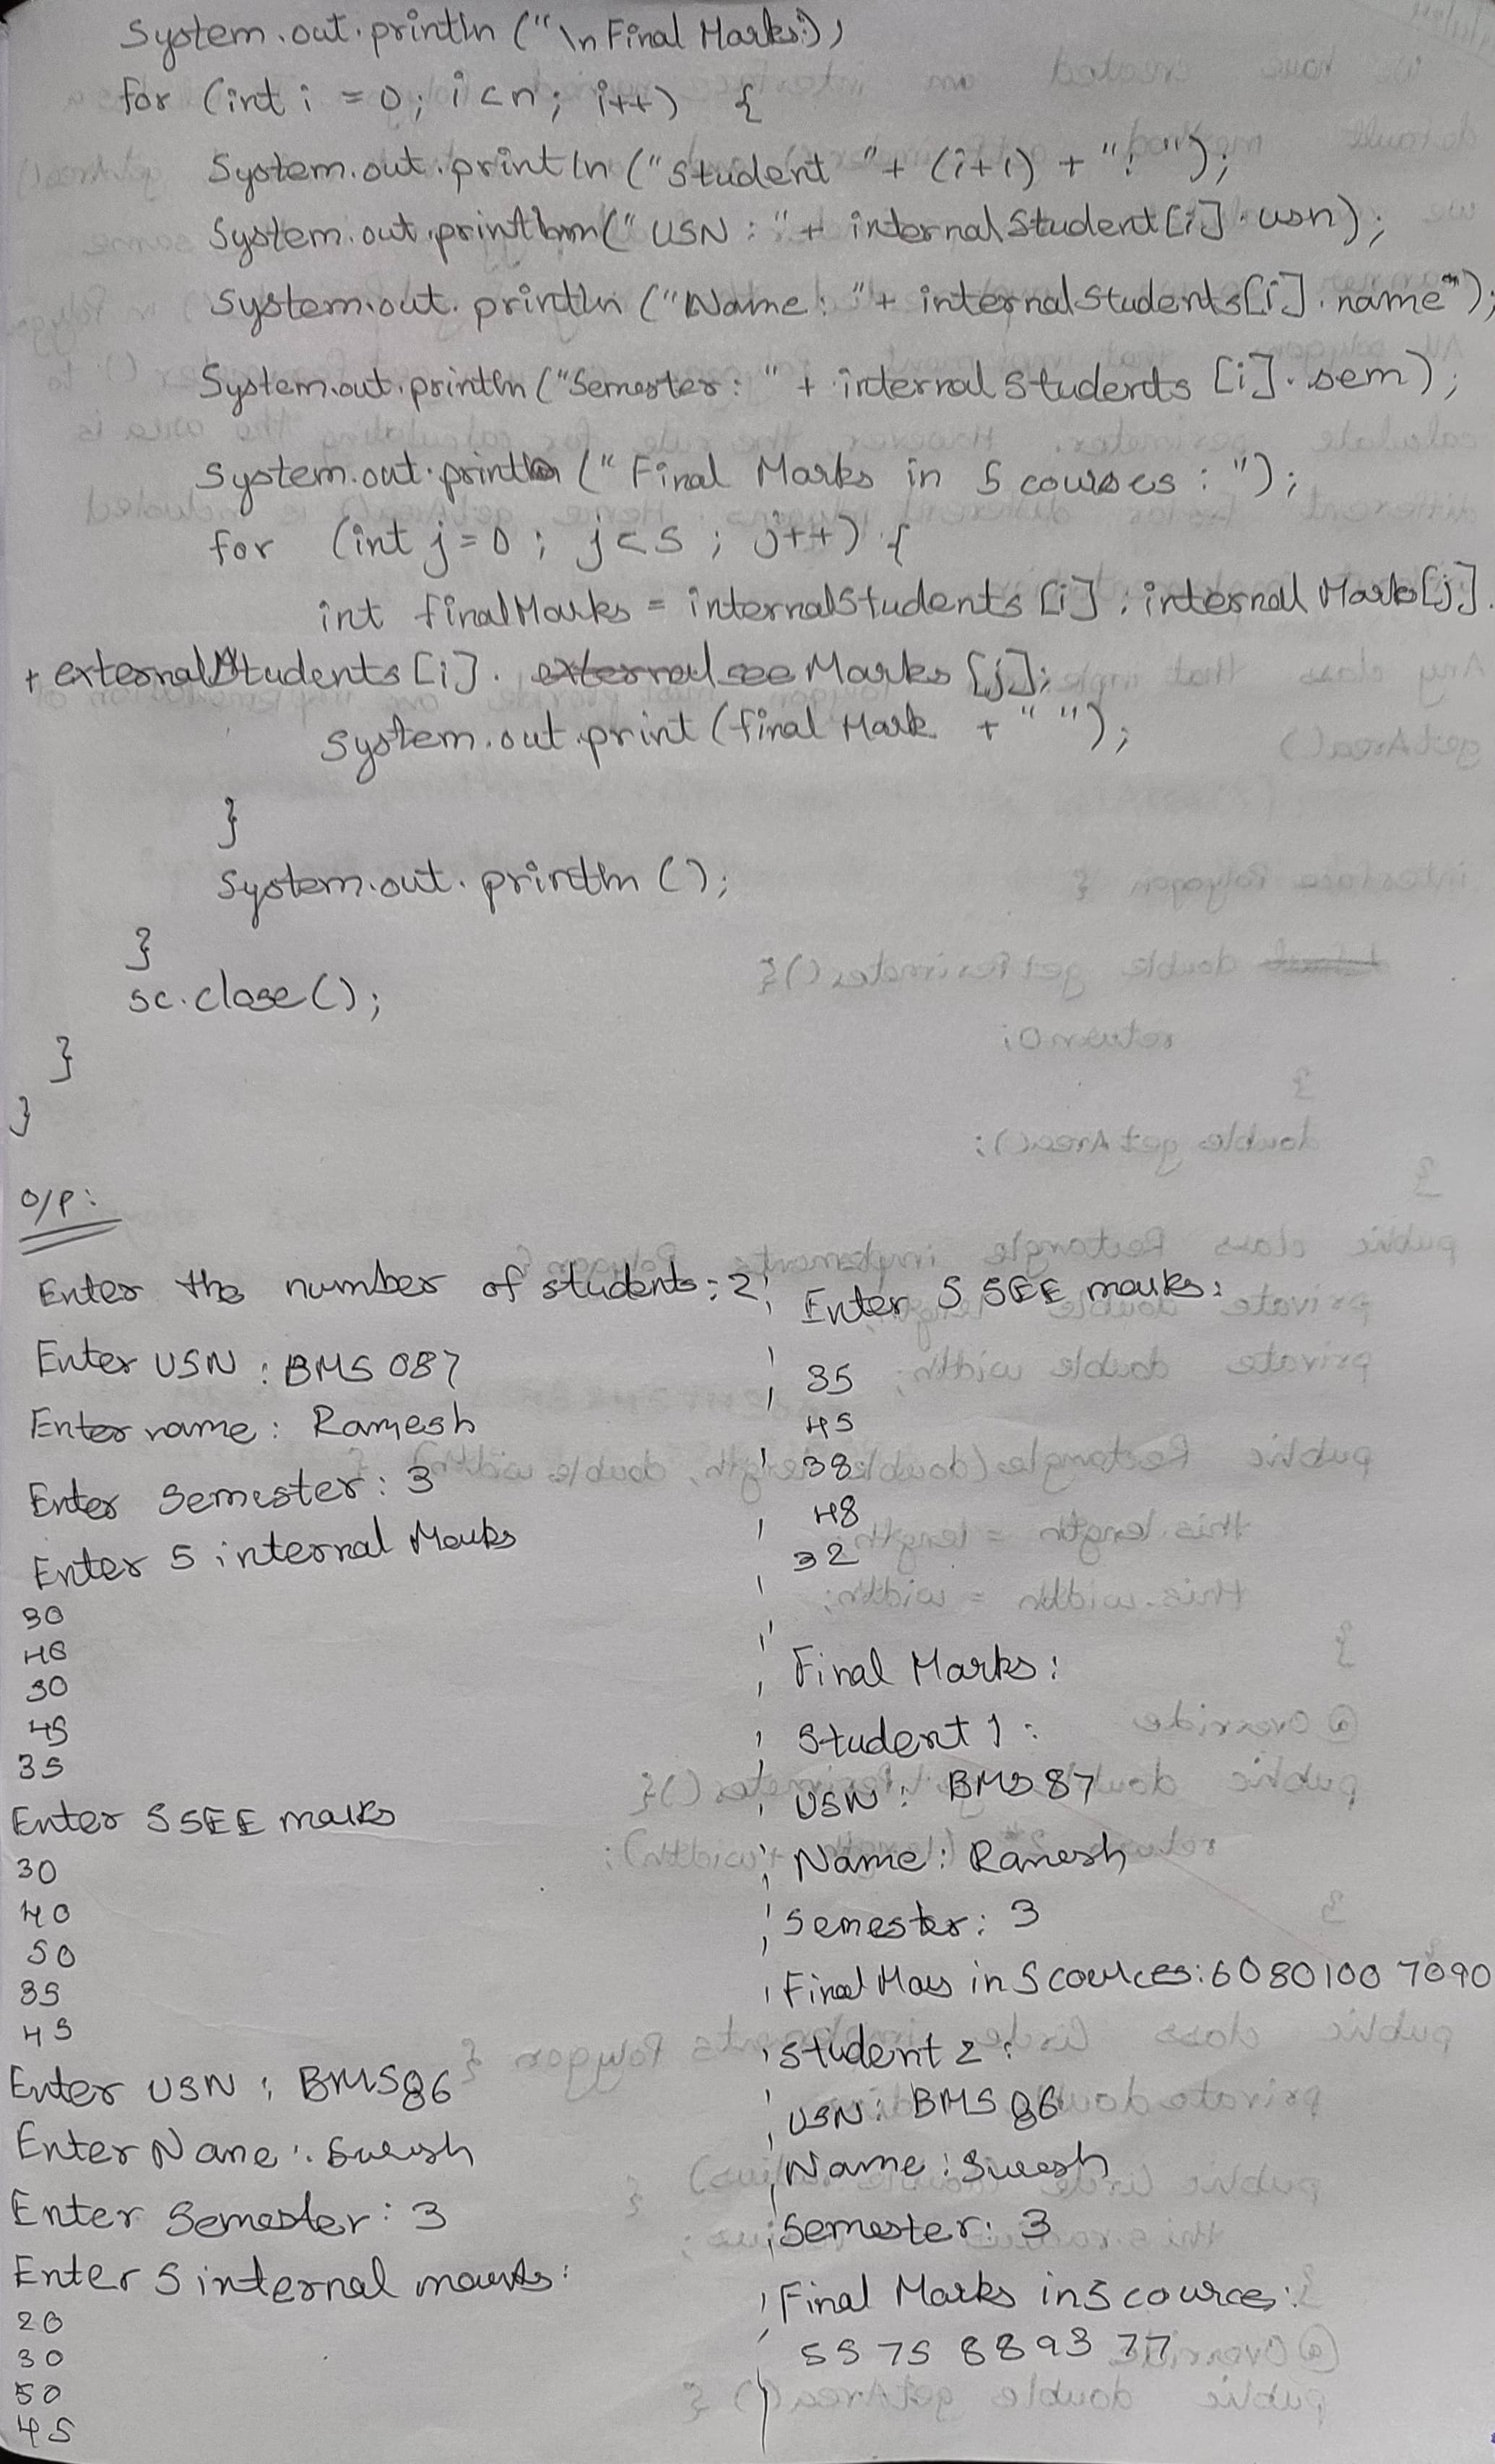 System.out.println ("\n Final Marks:");
for (int i = 0; i<n; i++) {
System.out.println ("Student "+ (i+1) + ": ");
System.out.println (" USN : "+ internalStudent[i].usn);
System.out.println ("Name: "+ internalStudents[i].name");
System.out.println ("Semester: " + internalStudents [i].sem);
System.out.println (" Final Marks in 5 courses : ");
for (int j=0 ; j<5 ; j++) {
int finalMarks = internalStudents [i].internal Marks[j]
+ externalStudents [i]. see Marks [j];
System.out.print (final Mark + " ");
}
System.out.println ();
}
sc.close();
}
}
O/P:
Enter the number of students: 2
Enter USN : BMS 087
Enter name : Ramesh
Enter Semester : 3
Enter 5 internal Marks
30
40
30
45
35
Enter 5 SEE marks
30
40
50
35
45
Enter USN : BMS 86
Enter Name : Suresh
Enter Semester : 3
Enter 5 internal marks:
20
30
50
45
Enter 5 SEE marks:
35
45
38
48
32
Final Marks:
Student 1 :
USN : BMS 87
Name : Ramesh
Semester : 3
Final Mars in 5 cources: 60 80 100 70 90
Student 2 :
USN: BMS 86
Name : Suresh
Semester: 3
Final Marks in 5 cources:
55 75 88 93 77